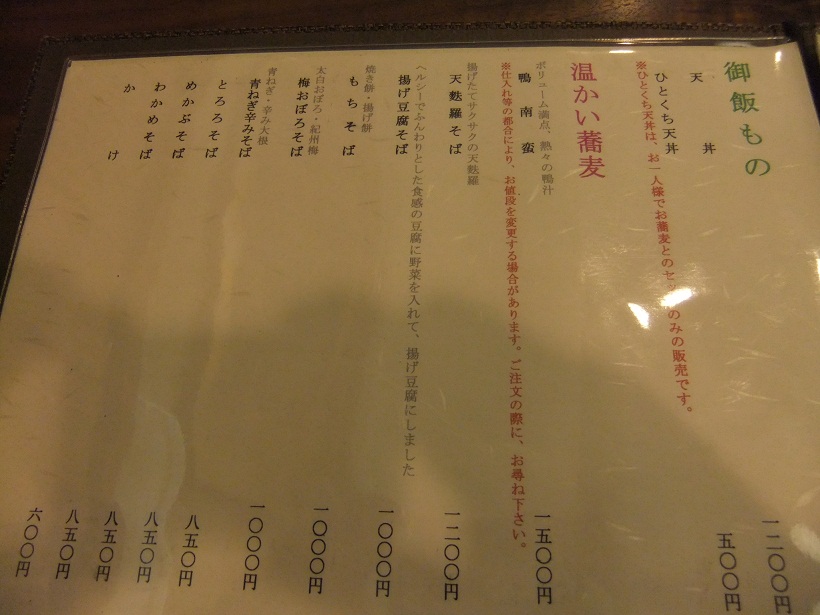 御飯もの
天丼 一二〇〇円
ひとくち天丼 五〇〇円
※ひとくち天丼は、お一人様でお蕎麦とのセッ のみの販売です。
温かい蕎麦
ボリューム満点、熱々の鴨汁
鴨南蛮 一五〇〇円
※仕入れ等の都合により、お値段を変更する場合があります。ご注文の際に、お尋ね下さい。
揚げたてサクサクの天麩羅
天麩羅そば 一二〇〇円
ヘルシーでふんわりとした食感の豆腐に野菜を入れて、揚げ豆腐にしました
揚げ豆腐そば 一〇〇〇円
焼き餅・揚げ餅
もちそば 一〇〇〇円
太白おぼろ・紀州梅
梅おぼろそば 一〇〇〇円
青ねぎ・辛み大根
青ねぎ辛みそば 八五〇円
とろろそば 八五〇円
めかぶそば 八五〇円
わかめそば 八五〇円
かけ 六〇〇円